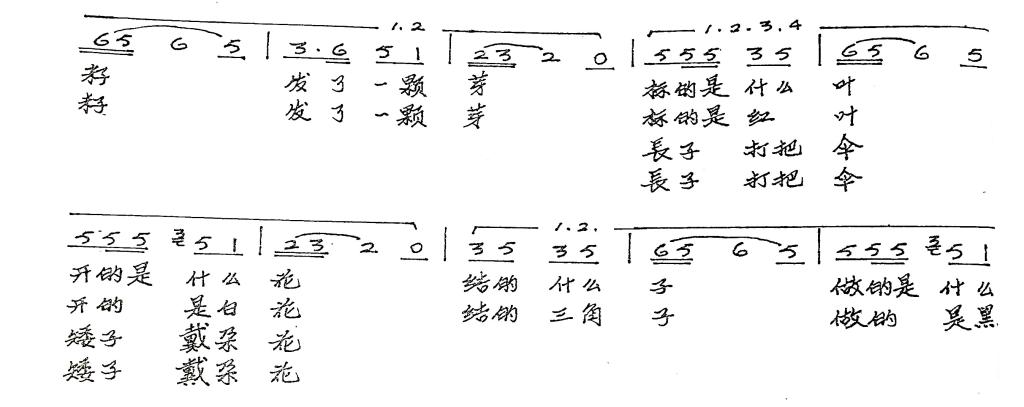 1.2 1.2.3.4
65 6 5 | 3.6 5 1 | 23 2 0 | 5 55 3 5 | 65 6 5
籽 发了 一颗 芽 标的是 什么 叶
籽 发了 一颗 芽 标的是 红 叶
長子 打把 伞
長子 打把 伞
1.2.
5 55 3 5 1 | 23 2 0 | 3 5 3 5 | 65 6 5 | 5 55 3 5 1
开的是 什么 花 结的 什么 子 做的是 什么
开的 是白 花 结的 三角 子 做的 是黑
矮子 戴朵 花
矮子 戴朵 花